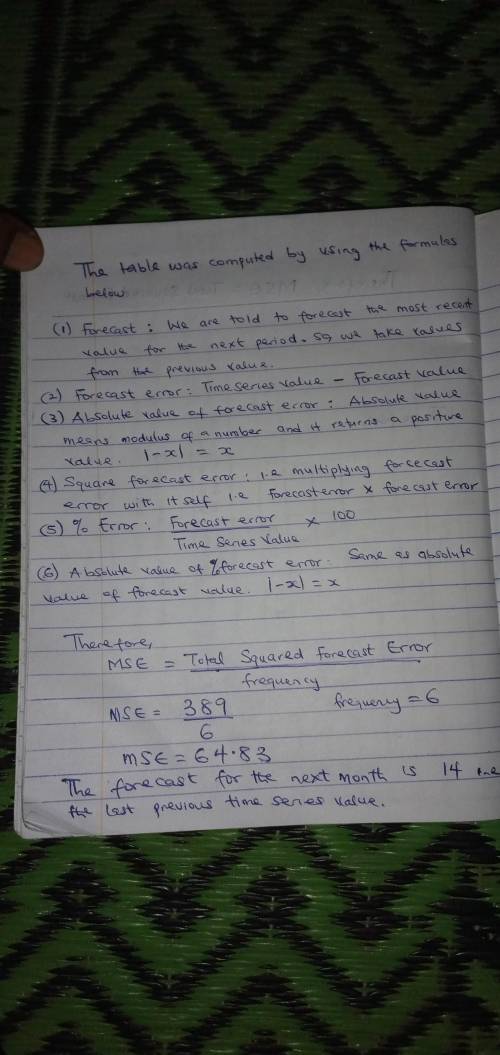 The table was computed by using the formulas
below
(1) Forecast: We are told to forecast the most recent
value for the next period. So, we take values
from the previous value.
(2) Forecast error: Time series value - Forecast value
(3) Absolute value of forecast error: Absolute value
means modulus of a number and it returns a positive
value. |-x| = x
(4) Square forecast error: i.e multiplying forcecast
error with it self i.e forecast error x forecast error
(5) % Error: Forecast error x 100
Time Series Value
(6) Absolute value of % forecast error: Same as absolute
value of forecast value. |-x| = x
Therefore,
MSE = Total Squared Forecast Error
frequency
MSE = 389 frequency = 6
6
MSE = 64.83
The forecast for the next month is 14
the last previous time series value.